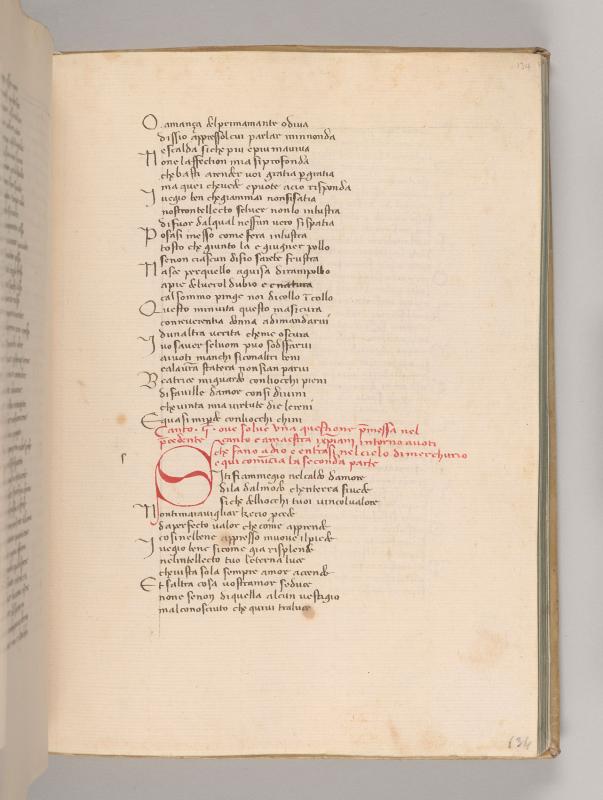 134
O amança del primamante o diva
dissio appresso il cui parlar minnonda
e scalda si che piu e piu maviva
None laffection mia si profonda
che basti arender voi gratia per gratia
ma quei che vede e puote acio risponda
I vegio ben che giammai non si satia
nostro intellecto se l ver non lo inlustra
di fuor dal qual nessun vero si spatia
Posasi in esso come fera in lustra
tosto che giunto la e giugner pollo
se non ciascun disio sarebe frustra
Nasce per quello aguisa di rampollo
apie del vero l dubio e e natura
cal sommo pinge noi di collo in collo
Questo minvita questo masicura
con reverentia donna adimandarvi
dunaltra verita che me oscura
I vo saver se luom puo sodisfarvi
ai voti manchi si con altri beni
che a la vostra statera non sian parvi
Beatrice mi guardo con li occhi pieni
di faville damor cosi divini
che vinta mia virtute die le reni
E quasi mi perde con li occhi chini
Canto .V. ove solve una questione premessa nel
precedente canto e amaestra i cristiani intorno avoti
che fano a dio e entrasi nel cielo di merchurio
e qui comincia la seconda parte
S Iti fiammegio nel caldo damore
di la dal modo che n terra si vede
si che delli occhi tuoi vinco l valore
Non ti maravigliar che cio procede
da perfecto valor che come apprende
cosi nel bene appresso muove il piede
I vegio bene si come gia risplende
nel intellecto tuo leterna luce
che vista sola sempre amor acende
Et saltra cosa vostramor seduce
none se non di quella alcun vestigio
mal conosciuto che quivi traluce
134